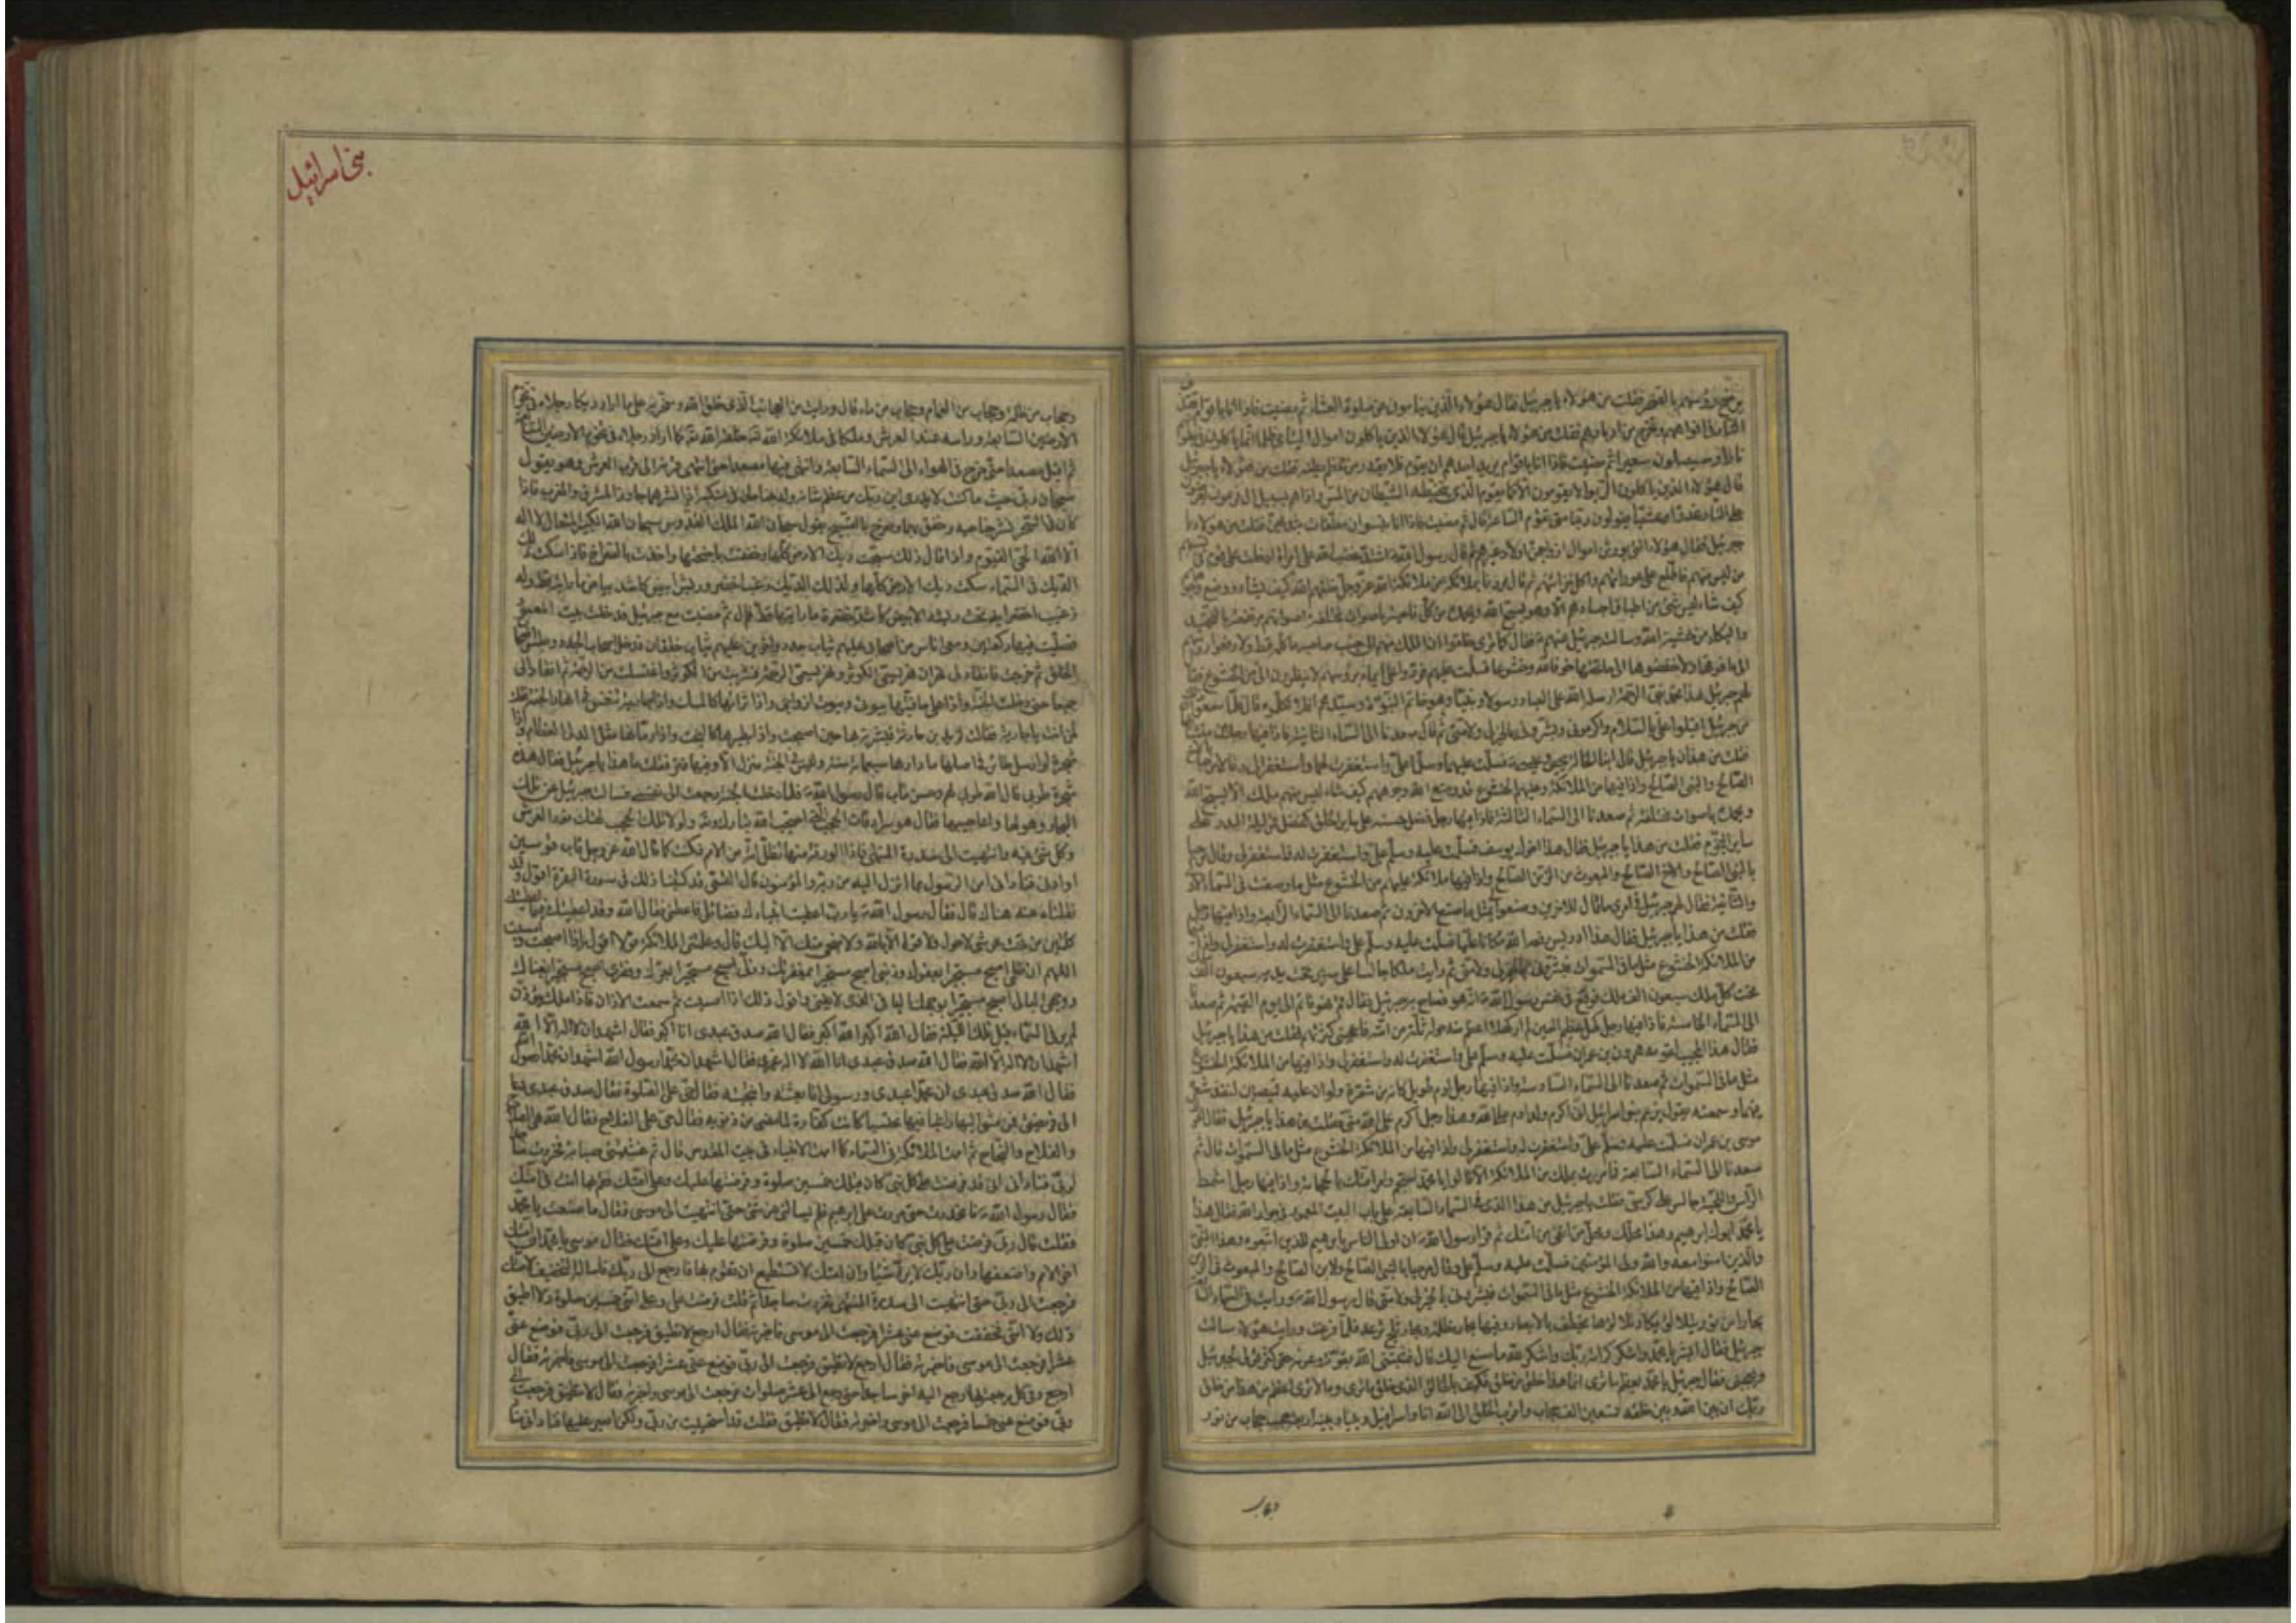 يرضخ رؤسهم بالصخر فقلت من هؤلاء يا جبرئيل فقال هؤلاء الذين ينامون عن صلوة العشاء ثم مضيت فاذا انا باقوام تقذف
النار في افواههم وتخرج من ادبارهم فقلت من هؤلاء يا جبرئيل قال هؤلاء الذين ياكلون اموال اليتامى ظلما انما ياكلون في بطونهم
نارا وسيصلون سعيرا ثم مضيت فاذا انا باقوام يريد احدهم ان يقوم فلا يقدر من عظم بطنه فقلت من هؤلاء يا جبرئيل
قال هؤلاء الذين ياكلون الربوا لا يقومون الا كما يقوم الذي يتخبطه الشيطان من المس واذا هم بسبيل ال فرعون يعرضون
على النار غدوا وعشيا يقولون ربنا متى تقوم الساعة قال ثم مضيت فاذا انا بنسوان معلقات بثديهن فقلت من هؤلاء يا
جبرئيل فقال هؤلاء اللواتي يورثن اموال ازواجهن اولاد غيرهم ثم قال رسول الله اشتد غضب الله على امراة ادخلت على قوم في
من ليس منهم فاطلع على عوراتهم واكل خزائنهم ثم قال مررنا بملائكة من ملائكة الله عز وجل خلقهم الله كيف شاء ووضع وجوههم
كيف شاء ليس شئ من اطباق اجسادهم الا وهو يسبح الله ويحمده من كل ناحية باصوات مختلفة اصواتهم مرتفعة بالتحميد
والبكاء من خشية الله وسالت جبرئيل عنهم فقال كما ترى خلقوا ان الملك منهم الى جنب صاحبه ما كلمه قط ولا رفعوا رؤسهم
الى ما فوقها ولا خفضوها الى ما تحتها خوفا لله وخشوعا فسلمت عليهم فردوا على ايماء برؤسهم لا ينظرون الى من الخشوع فقال
لهم جبرئيل هذا محمد نبي الرحمة ارسله الله على العباد رسولا ونبيا وهو خاتم النبوة وسيدهم افلا تكلموه قال فلما سمعوا ذلك
من جبرئيل اقبلوا علي بالسلام واكرموني وبشروني بالخير لي ولامتي ثم قال صعدنا الى السماء الثانية فاذا فيها رجلان متشابهان
فقلت من هذان يا جبرئيل قال ابنا الخالة يحيى وعيسى فسلمت عليهما وسلما علي واستغفرت لهما واستغفرا لي وقالا مرحبا بالاخ
الصالح والنبي الصالح واذا فيها من الملائكة وعليهم الخشوع قد وضع الله وجوههم كيف شاء ليس منهم ملك الا يسبح الله
ويحمده باصوات مختلفة ثم صعدنا الى السماء الثالثة فاذا فيها رجل فضل حسنه على ساير الخلق كفضل قمر ليلة البدر على
ساير النجوم فقلت من هذا يا جبرئيل فقال هذا اخوك يوسف فسلمت عليه وسلم علي واستغفرت له فاستغفر لي وقال مرحبا
بالنبي الصالح والاخ الصالح والمبعوث في الزمن الصالح واذا فيها ملائكة عليهم من الخشوع مثل ما وصفت في السماء الاولى
والثانية فقال لهم جبرئيل في امري ما قال للاخرين وصنعوا بي مثل ما صنع الاخرون ثم صعدنا الى السماء الرابعة واذا فيها رجل
فقلت من هذا يا جبرئيل فقال هذا ادريس رفعه الله مكانا عليا فسلمت عليه وسلم علي واستغفرت له واستغفر لي واذا فيها
من الملائكة الخشوع مثل ما في السموات فبشروني بالخير لي ولامتي ثم رايت ملكا جالسا على سرير تحت يديه سبعون الف
تحت كل ملك سبعون الف ملك فوقع في نفس رسول الله انه هو فصاح به جبرئيل فقال قم فهو قائم الى يوم القيمة ثم صعدنا
الى السماء الخامسة فاذا فيها رجل كهل عظيم العين لم ار كهلا اعظم منه حوله ثلثة من امته فاعجبتني كثرتهم فقلت من هذا يا جبرئيل
فقال هذا المجيب لقومه هرون بن عمران فسلمت عليه وسلم علي واستغفرت له واستغفر لي واذا فيها من الملائكة الخشوع
مثل ما في السموات ثم صعدنا الى السماء السادسة واذا فيها رجل ادم طويل كانه من شعرة ولو ان عليه قميصين لنفذ شعره
فيهما وسمعته يقول يزعم بنو اسرائيل اني اكرم ولد ادم على الله وهذا رجل اكرم على الله مني فقلت من هذا يا جبرئيل فقال اخوك
موسى بن عمران فسلمت عليه وسلم علي واستغفرت له واستغفر لي واذا فيها من الملائكة الخشوع مثل ما في السموات قال ثم
صعدنا الى السماء السابعة فما مررت بملك من الملائكة الا قالوا يا محمد احتجم وامر امتك بالحجامة واذا فيها رجل اشمط
الراس واللحية جالس على كرسي فقلت يا جبرئيل من هذا الذي في السماء السابعة على باب البيت المعمور في جوار الله فقال هذا
يا محمد ابوك ابرهيم وهذا محلك ومحل من اتقى من امتك ثم قرأ رسول الله ان اولى الناس بابرهيم للذين اتبعوه وهذا النبي
والذين امنوا معه والله ولي المؤمنين فسلمت عليه وسلم علي وقال مرحبا بالنبي الصالح والابن الصالح والمبعوث في الزمن
الصالح واذا فيها من الملائكة الخشوع مثل ما في السموات فبشروني بالخير لي ولامتي قال رسول الله ورايت في السماء السابعة
بحارا من نور يتلالؤ يكاد تلالؤها يخطف بالابصار وفيها بحار ظلمة وبحار ثلج ترعد فلما فزعت ورايت هؤلاء سالت
جبرئيل فقال ابشر يا محمد واشكر كرامة ربك واشكر الله ما صنع اليك قال فثبتني الله بقوته وعونه حتى كثر قولي لجبرئيل
وتعجبي فقال جبرئيل يا محمد تعظم ما ترى انما هذا خلق من خلق ربك فكيف بالخالق الذي خلق ما ترى وما لا ترى اعظم من هذا من خلق
ربك ان بين الله وبين خلقه تسعين الف حجاب واقرب الخلق الى الله انا واسرافيل وبيننا وبينه اربعة حجب حجاب من نور
وحجاب
بنی اسرائیل
وحجاب من ظلمة وحجاب من الغمام وحجاب من ماء قال ورايت من العجائب الذي خلق الله وسخر به على ما اراد ديكا رجلاه في تخوم
الارضين السابعة وراسه عند العرش وملكا من ملائكة الله خلقه الله كما اراد رجلاه في تخوم الارضين السابعة
ثم اقبل مصعدا حتى خرج في الهواء الى السماء السابعة وانتهى فيها مصعدا حتى انتهى قرنه الى قرب العرش وهو يقول
سبحان ربي حيث ما كنت لا تدري اين ربك من عظم شانه وله جناحان في منكبيه اذا نشرهما جاوزا المشرق والمغرب فاذا
كان في السحر نشر جناحيه وخفق بهما وصرخ بالتسبيح يقول سبحان الله الملك القدوس سبحان الله الكبير المتعال لا اله
الا الله الحي القيوم واذا قال ذلك سبحت ديك الارض كلها وخفقت باجنحتها واخذت بالصراخ فاذا سكت ذلك
الديك في السماء سكت ديك الارض كلها ولذلك الديك زغب اخضر وريش ابيض كاشد بياض ما رايته قط وله
زغب اخضر ايضا تحت ريشه الابيض كاشد خضرة ما رايتها قط قال ثم مضيت مع جبرئيل فدخلت بيت المعمور
فصليت فيها ركعتين ومعي اناس من اصحابي عليهم ثياب جدد واخرين عليهم ثياب خلقان فدخل اصحاب الجدد وجلس اصحاب
الخلقان ثم خرجت فانقاد لي نهران نهر يسمى الكوثر ونهر يسمى الرحمة فشربت من الكوثر واغتسلت من الرحمة ثم انقادا لي
جميعا حتى دخلت الجنة واذا على حافتيها بيوتي وبيوت ازواجي واذا ترابها كالمسك واذا جارية تنغمس في انهار الجنة فقلت
لمن انت يا جارية فقالت لزيد بن حارثة فبشرته بها حين اصبحت واذا بطيرها كالبخت واذا رمانها مثل الدلي العظام واذا
شجرة لو ارسل طائر في اصلها ما دارها سبعمائة سنة وليس في الجنة منزل الا وفيها قتر فقلت ما هذا يا جبرئيل فقال هذه
شجرة طوبى قال الله طوبى لهم وحسن ماب قال رسول الله فلما دخلت الجنة رجعت الى نفسي فسالت جبرئيل عن تلك
البحار وهولها واعاجيبها فقال هو سرادقات الحجب التي احتجب الله تبارك وتعالى ولولا تلك الحجب لهتك نور العرش
وكل شئ فيه وانتهيت الى سدرة المنتهى فاذا الورقة منها تظل امة من الامم فكنت كما قال الله عز وجل قاب قوسين
او ادنى فناداني امن الرسول بما انزل اليه من ربه والمؤمنون قال القمي قد كتبنا ذلك في سورة البقرة اقول وقد
نقلناه عنه هناك قال فقال رسول الله يا رب اعطيت انبياءك فضائل فاعطني فقال الله وقد اعطيتك فيما اعطيتك
كلمتين من تحت عرشي لا حول ولا قوة الا بالله ولا منجى منك الا اليك قال وعلمتني الملائكة قولا اقول اذا اصبحت وامسيت
اللهم ان ظلمي اصبح مستجيرا بعفوك وذنبي اصبح مستجيرا بمغفرتك وذلي اصبح مستجيرا بعزك وفقري اصبح مستجيرا بغناك
ووجهي البالي اصبح مستجيرا بوجهك الباقي الذي لا يفنى واقول ذلك اذا امسيت ثم سمعت الاذان فاذا ملك يؤذن
لم ير في السماء قبل تلك الليلة فقال الله اكبر الله اكبر فقال الله صدق عبدي انا اكبر فقال اشهد ان لا اله الا الله
اشهد ان لا اله الا الله فقال الله صدق عبدي انا الله لا اله غيري فقال اشهد ان محمدا رسول الله اشهد ان محمدا رسول الله
فقال الله صدق عبدي ان محمدا عبدي ورسولي انا بعثته وانتجبته فقال حي على الصلوة فقال صدق عبدي دعا
الى فريضتي فمن مشى اليها راغبا فيها محتسبا كانت كفارة لما مضى من ذنوبه فقال حي على الفلاح فقال الله هي الصلاح
والفلاح والنجاح ثم اممت الملائكة في السماء كما اممت الانبياء في بيت المقدس قال ثم غشيتني صبابة فخررت ساجدا
لربي فناداني اني قد فرضت على كل نبي كان قبلك خمسين صلوة وفرضتها عليك وعلى امتك فقم بها انت في امتك
فقال رسول الله فانحدرت حتى مررت على ابرهيم فلم يسالني عن شئ حتى انتهيت الى موسى فقال ما صنعت يا محمد
فقلت قال ربي فرضت على كل نبي كان قبلك خمسين صلوة وفرضتها عليك وعلى امتك فقال موسى يا محمد ان امتك
اخر الامم واضعفها وان ربك لا يرد شيئا وان امتك لا تستطيع ان تقوم بها فارجع الى ربك فاساله التخفيف لامتك
فرجعت الى ربي حتى انتهيت الى سدرة المنتهى فخررت ساجدا ثم قلت فرضت علي وعلى امتي خمسين صلوة ولا اطيق
ذلك ولا امتي فخففت فوضع عني عشرا فرجعت الى موسى فاخبرته فقال ارجع لا تطيق فرجعت الى ربي فوضع عني
عشرا فرجعت الى موسى فاخبرته فقال ارجع لا تطيق فرجعت الى ربي فوضع عني عشرا فرجعت الى موسى فاخبرته فقال
ارجع وفي كل رجعة ارجع اليه اخر ساجدا حتى رجع الى عشر صلوات فرجعت الى موسى واخبرته فقال لا تطيق فرجعت الى
ربي فوضع عني خمسا فرجعت الى موسى واخبرته فقال لا تطيق فقلت قد استحييت من ربي ولكن اصبر عليها فناداني مناد